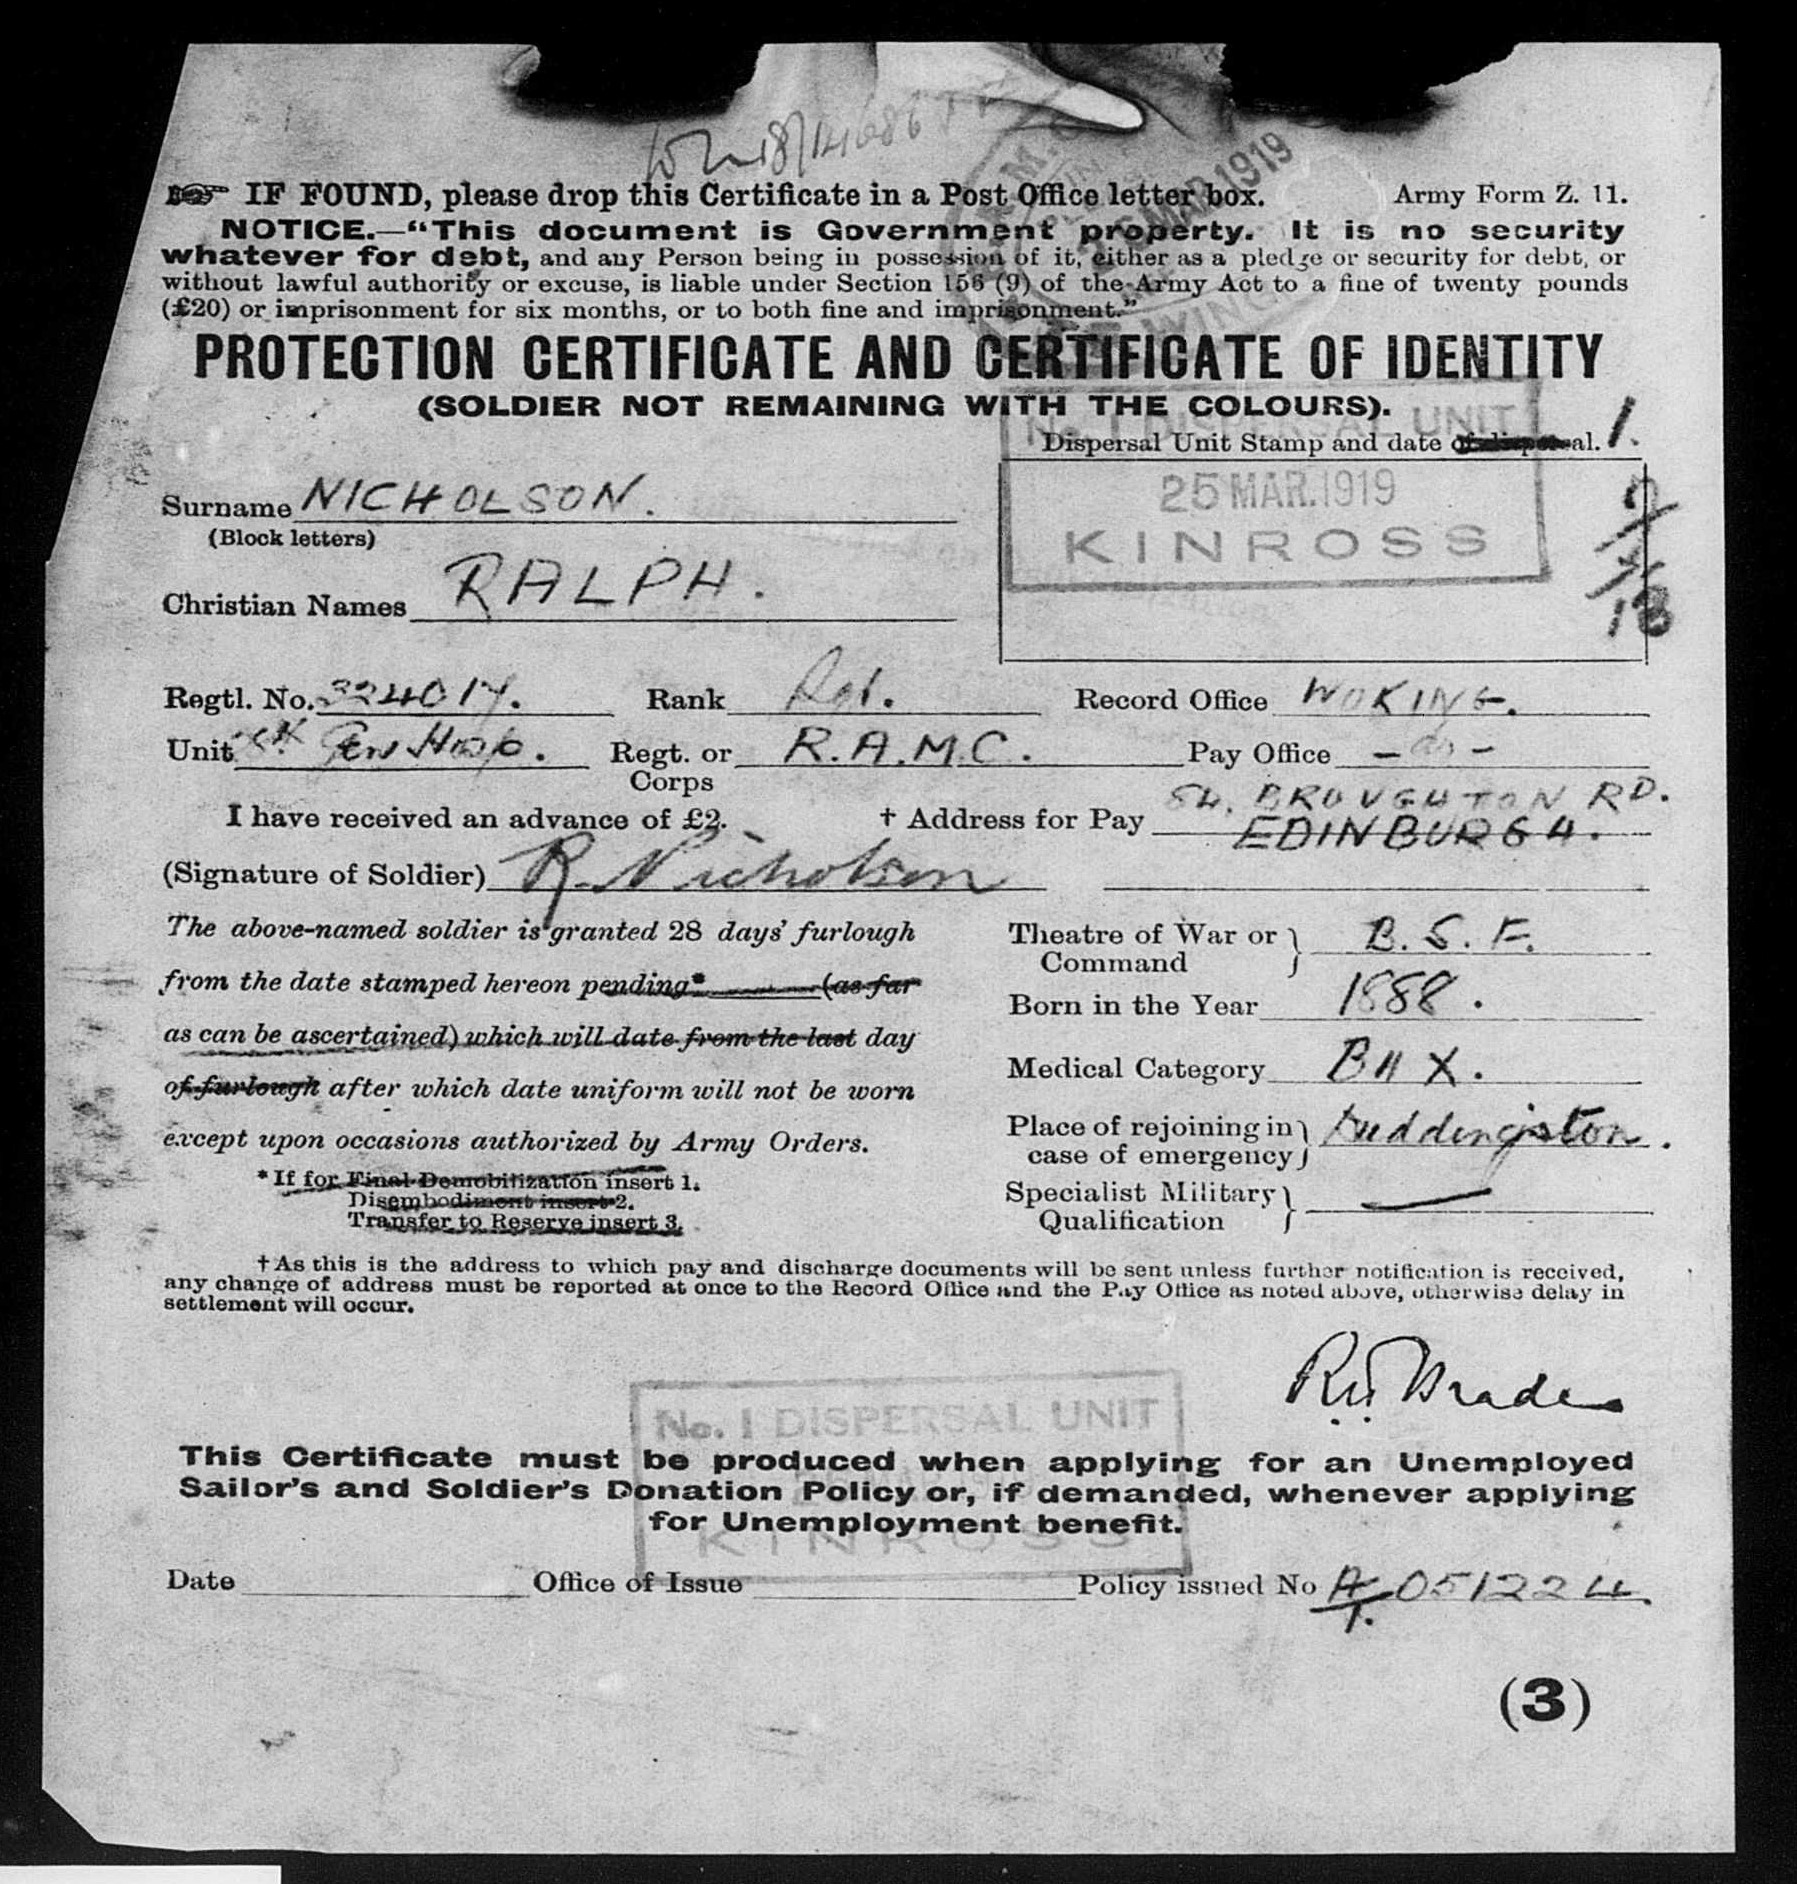 ☞ IF FOUND, please drop this Certificate in a Post Office letter box. Army Form Z. 11.
26 MAR 1919
NOTICE.—"This document is Government property. It is no security
whatever for debt, and any Person being in possession of it, either as a pledge or security for debt, or
without lawful authority or excuse, is liable under Section 156 (9) of the Army Act to a fine of twenty pounds
(£20) or imprisonment for six months, or to both fine and imprisonment."
PROTECTION CERTIFICATE AND CERTIFICATE OF IDENTITY
(SOLDIER NOT REMAINING WITH THE COLOURS).
No. 1 DISPERSAL UNIT
Dispersal Unit Stamp and date of dispersal. 1.
25 MAR. 1919
KINROSS
Surname NICHOLSON.
(Block letters)
Christian Names RALPH.
Regtl. No. Rank Record Office WOKING.
Unit Gen Hosp. Regt. or Corps R.A.M.C. Pay Office – do –
I have received an advance of £2. † Address for Pay 54. BROUGHTON RD.
EDINBURGH.
(Signature of Soldier) R. Nicholson
The above-named soldier is granted 28 days' furlough
from the date stamped hereon pending* (as far
as can be ascertained) which will date from the last day
of furlough after which date uniform will not be worn
except upon occasions authorized by Army Orders.
*If for Final Demobilization insert 1.
Disembodiment insert 2.
Transfer to Reserve insert 3.
Theatre of War or Command B. S. F.
Born in the Year 1888.
Medical Category B II X.
Place of rejoining in case of emergency Duddingston.
Specialist Military Qualification —
†As this is the address to which pay and discharge documents will be sent unless further notification is received,
any change of address must be reported at once to the Record Office and the Pay Office as noted above, otherwise delay in
settlement will occur.
No. 1 DISPERSAL UNIT
This Certificate must be produced when applying for an Unemployed
Sailor's and Soldier's Donation Policy or, if demanded, whenever applying
for Unemployment benefit.
KINROSS
Date Office of Issue Policy issued No A/1. 051224.
(3)